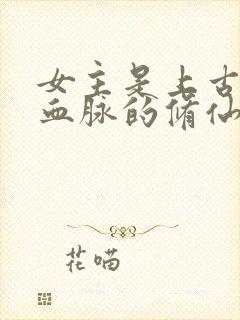 女主是上古
血脉的修仙
花喵